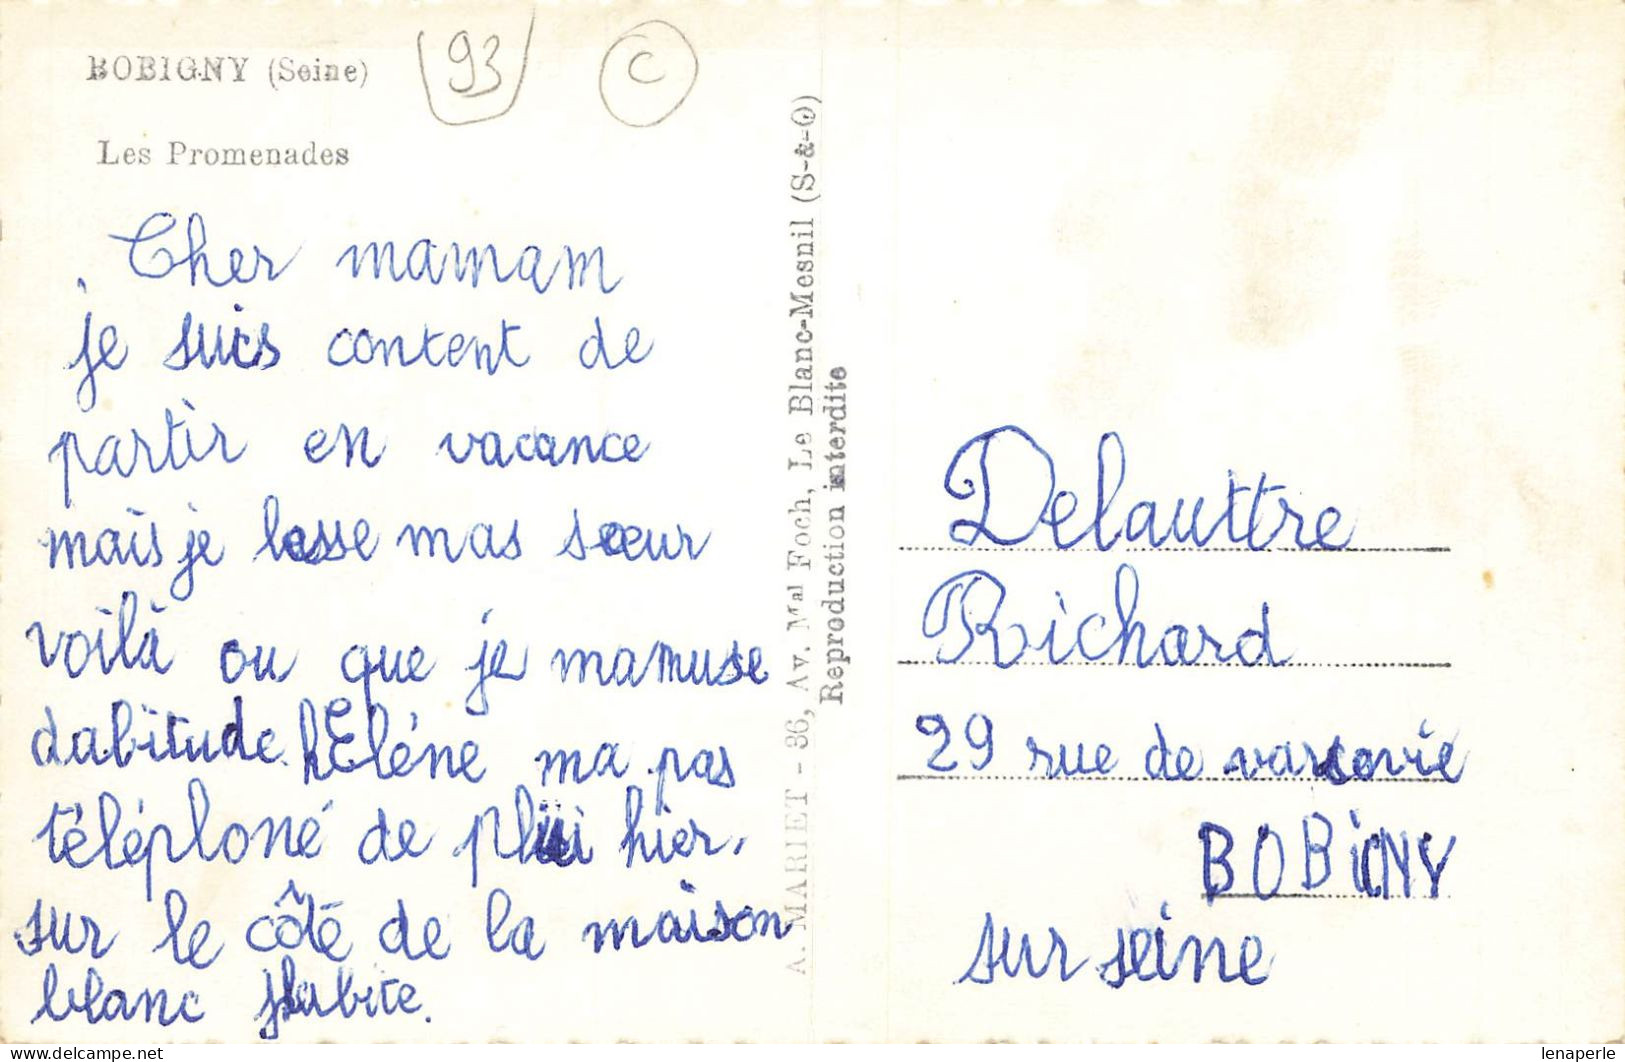 BOBIGNY (Seine)
93
C
Les Promenades
Cher mamam
je suis content de
partir en vacance
mais je lesse mas sœur
voilà ou que je mamuse
dabitude. hÉléne ma pas
téléploné de plui hier.
sur le côté de la maison
blanc jhabite.
A. MARIET - 36, Av. Mal Foch, Le Blanc-Mesnil (S-&-O)
Reproduction interdite
Delauttre
Richard
29 rue de varsovie
BOBiGNY
sur seine
delcampe.net
lenaperle